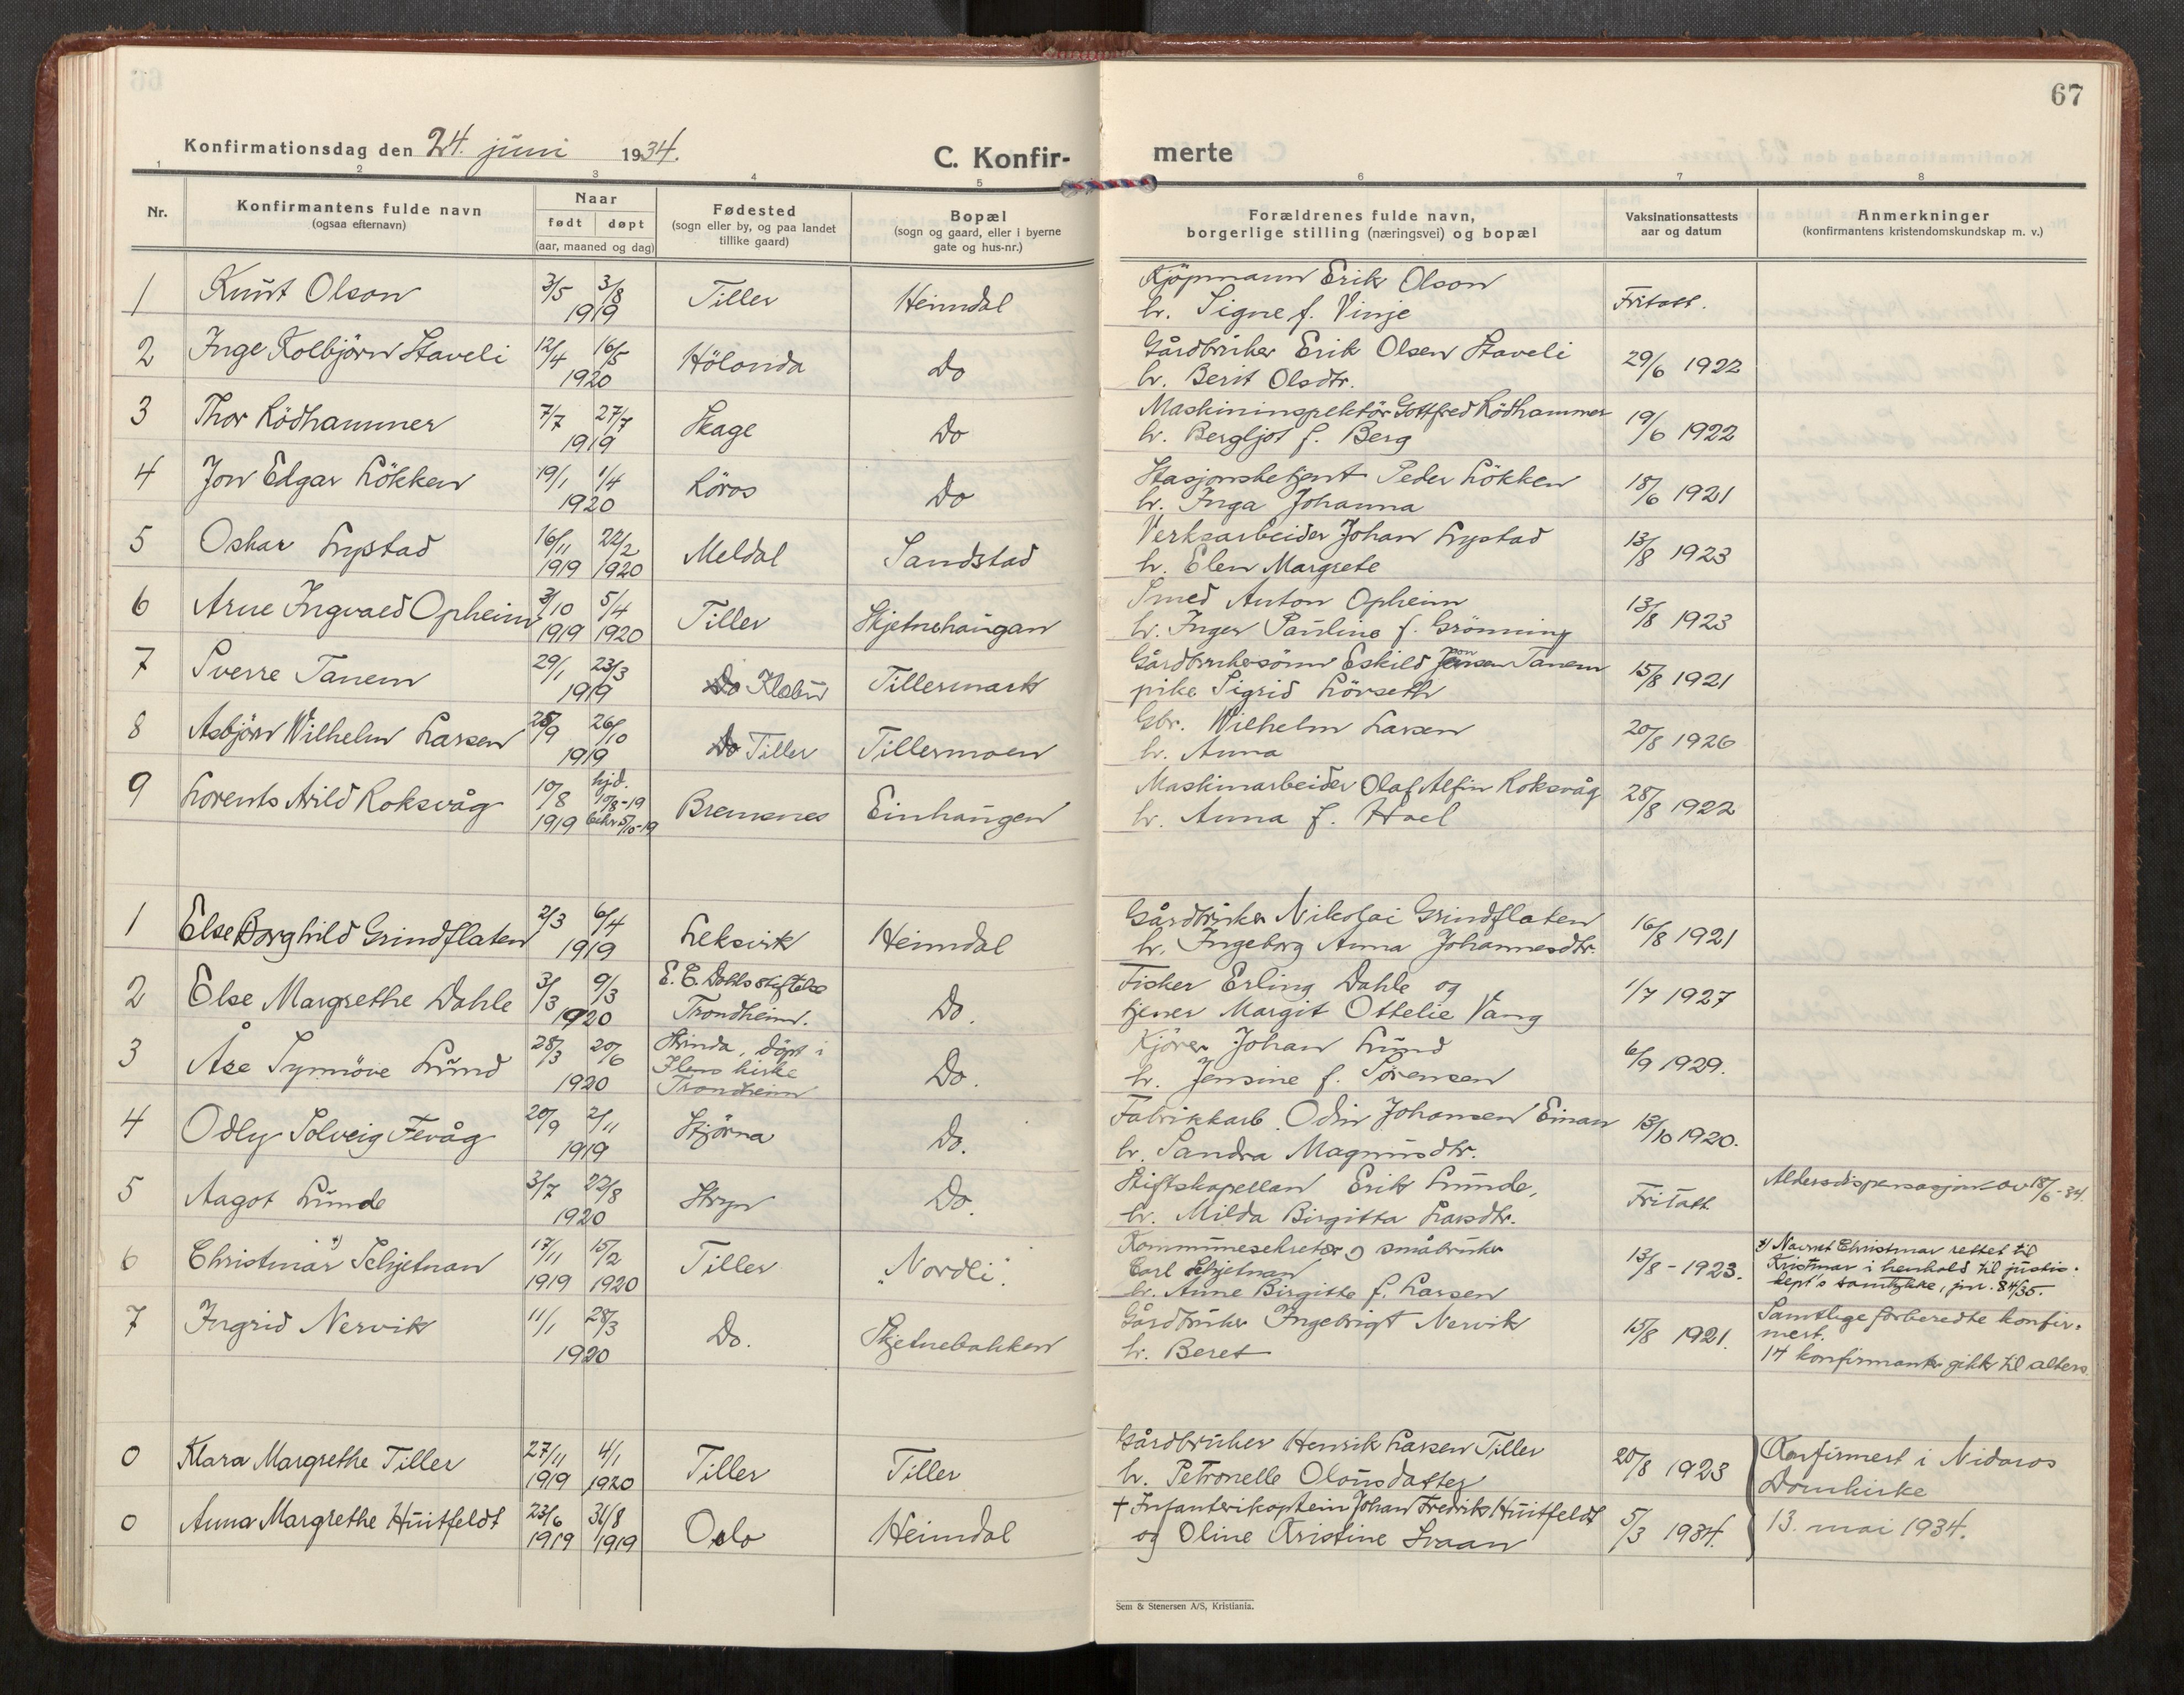 67
Konfirmationsdag den 24. juni 1934.
C. Konfir-
merte
1 2 3 4 5 6 7 8
Nr.
Konfirmantens fulde navn
(ogsaa efternavn)
Naar
født døpt
(aar, maaned og dag)
Fødested
(sogn eller by, og paa landet
tillike gaard)
Bopæl
(sogn og gaard, eller i byerne
gate og hus-nr.)
Forældrenes fulde navn,
borgerlige stilling (næringsvei) og bopæl
Vaksinationsattests
aar og datum
Anmerkninger
(konfirmantens kristendomskundskap m. v.)
1 Knut Olson 3/5 3/8 1919 Tiller Heimdal Kjöpmann Erik Olson
h. Signe f. Vinje Fritatt.
2 Inge Kolbjörn Staveli 12/4 16/5 1920 Hölonda Do Gårdbruker Erik Olsen Staveli
h. Berit Olsdtr. 29/6 1922
3 Thor Rödhammer 7/7 27/7 1919 Skage Do Maskininspektör Gottfred Rödhammer
h. Bergljot f. Berg 19/6 1922
4 Jon Edgar Lökken 19/1 1/4 1920 Röros Do Stasjonsbetjent Peder Lökken
h. Inga Johanna 18/6 1921
5 Oskar Lystad 16/11 1919 22/2 1920 Meldal Sandstad Verksarbeider Johan Lystad
h. Elen Margrete 13/8 1923
6 Arne Ingvald Opheim 3/10 1919 5/4 1920 Tiller Skjetnehaugan Smed Anton Opheim
h. Inger Pauline f. Grönning 13/8 1923
7 Sverre Tanem 29/1 23/3 1919 Do Klæbu Tillermark Gårdbrukersönn Eskild Jensen Tanem
pike Sigrid Lövseth 15/8 1921
8 Asbjörn Wilhelm Larsen 28/9 26/10 1919 Do Tiller Tillermoen Gbr. Wilhelm Larsen
h. Anna 20/8 1926
9 Lorents Arild Roksvåg 10/8 1919 hjd. 10/8-19 bekr 5/10-19 Bremsnes Einhaugen Maskinarbeider Olaf Alfin Roksvåg
h. Anna f. Hoel 28/8 1922
1 Else Borghild Grindflaten 2/3 6/4 1919 Leksvik Heimdal Gårdbruker Nikolai Grindflaten
h. Ingeborg Anna Johannesdtr. 16/8 1921
2 Else Margrethe Dahle 3/3 9/3 1920 E. C. Dahls stiftelse
Trondheim. Do. Fisker Erling Dahle og
tjener Margit Ottelie Vang 1/7 1927
3 Åse Synnöve Lund 28/3 20/6 1920 Strinda, döpt i
Ilens kirke
Trondheim Do. Kjörer Johan Lund
h. Jensine f. Sörensen 6/9 1929.
4 Odly Solveig Fevåg 20/9 2/11 1919 Stjörna Do. Fabrikkarb. Odin Johansen Einan
h. Sandra Magnusdtr. 13/10 1920.
5 Aagot Lunde 3/7 22/8 1920 Stryn Do. Stiftskapellan Erik Lunde,
h. Milda Birgitta Larsdtr. Fritatt Aldersdispensasjon av 18/6-34.
6 Christmar x) Schjetnan 17/11 1919 15/2 1920 Tiller „Nordli". Kommunesekretær og småbruker
Carl Schjetnan
h. Anne Birgitte f. Larsen 13/8 - 1923. x) Navnet Christmar rettet til
Kristmar i henhold til justis-
dept's samtykke, jnr. 84/35.
7 Ingrid Nervik 11/1 28/3 1920 Do. Skjetnebakken Gårdbruker Ingebrigt Nervik
h. Beret 15/8 1921. Samtlige forberedte konfir-
mert.
14 konfirmanter gikk til alters.
0 Klara Margrethe Tiller 27/11 1919 4/1 1920 Tiller Tiller Gårdbruker Henrik Larsen Tiller
h. Petronelle Olausdatter 20/8 1923 Konfirmert i Nidaros
Domkirke
0 Anna Margrethe Huitfeldt 23/6 1919 31/8 1919 Oslo Heimdal † Infanterikaptein Johan Fredrik Huitfeldt
og Oline Kristine Svaan 5/3 1934. 13. mai 1934.
Sem & Stenersen A/S, Kristiania.